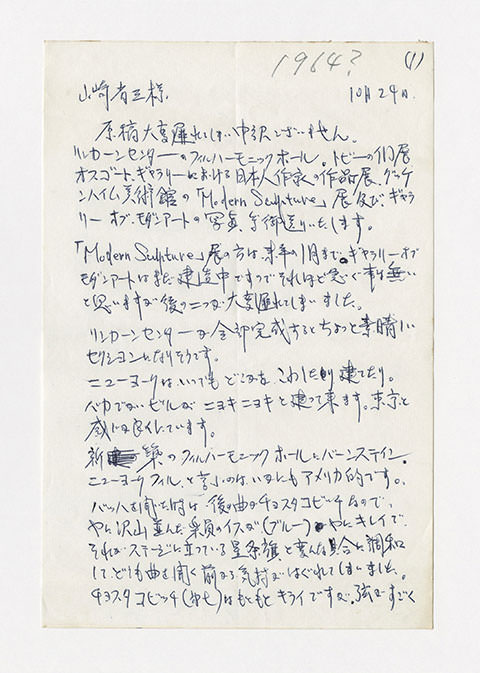 1964?
(1)
山崎省三様
10月29日.
原稿大変遅れてしまい申訳ございません。
リンカーンセンターのフィルハーモニックホール。トビーの個展
オスゴートギャラリーにおける日本人作家の作品展、グッケ
ンハイム美術館の「Modern Sculpture」展及び、ギャラ
リー オブ モダンアートの写真、等御送りいたします。
「Modern Sculpture」展の方は、来年の1月まで。ギャラリーオブ
モダンアートはまだ建造中ですのでそれほど急ぐ事も無い
と思いますが後の二つが大変遅れてしまいました。
リンカーンセンターが全部完成するとちょっと素晴しい
セクションになりそうです。
ニューヨークはいつでもどこかを、こわしたり建てたり。
バカでかいビルがニョキニョキと建って来ます。東京と
感じは似ています。
新築のフィルハーモニックホールにバーンステイン。
ニューヨークフィルと言うのはいかにもアメリカ的です。
バッハを聞いた時は後の曲がチョスタコビッチなので、
やに沢山並んだ楽員のイスが(ブルー)やにキレイで、
それがステージに立っている星条旗と変んな具合に調和
して、どうも曲を聞く前から気持がはぐれてしまいました。
チョスタコビッチ(第七)はもともとキライですが、弦がすごく